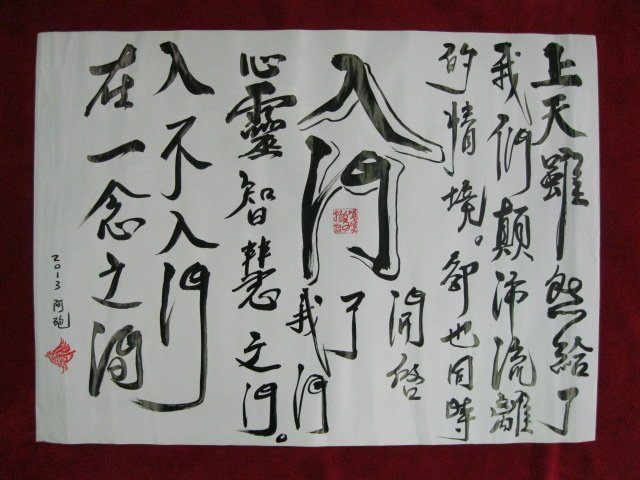 上天雖然給了
我們顛沛流離
的情境。卻也同時
開啓
了
我們
心靈智慧之門。
入門
入不入門
在一念之間
2013 阿砲